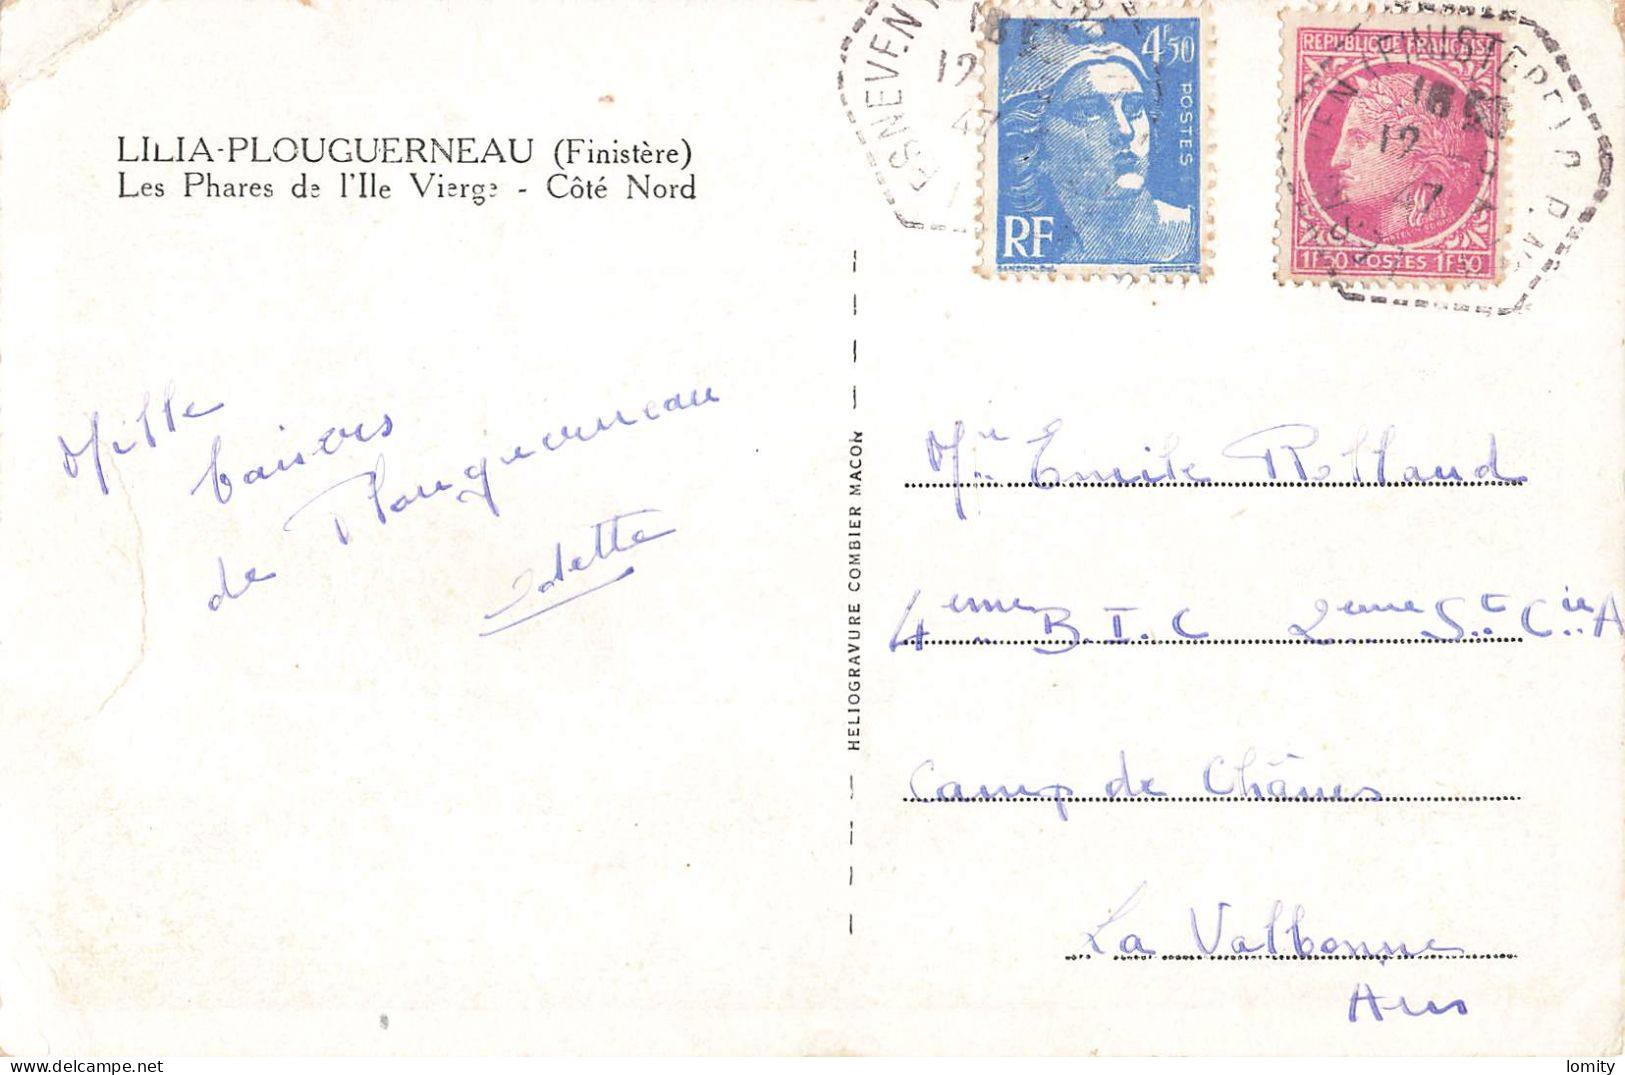 LILIA-PLOUGUERNEAU (Finistère)
Les Phares de l'Ile Vierge - Côté Nord
Mille
baisers
de Plouguerneau
Odette
HELIOGRAVURE COMBIER MACON
4F50
POSTES
RF
GANDON
REPUBLIQUE FRANÇAISE
1F50 POSTES 1F50
LESNEVEN
18
12
47
LESNEVEN (FINISTERE)
18
12 -9
47
Mr Emile Rolland
4eme B.I.C 2eme St Cie A
Camp de Chânes
La Valbonne
Ain
lomity